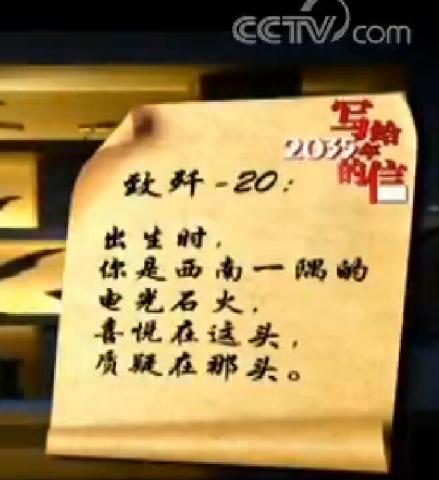 CCTV.com
写给
2035年
的信
致歼-20：
出生时，
你是西南一隅的
电光石火，
喜悦在这头，
质疑在那头。